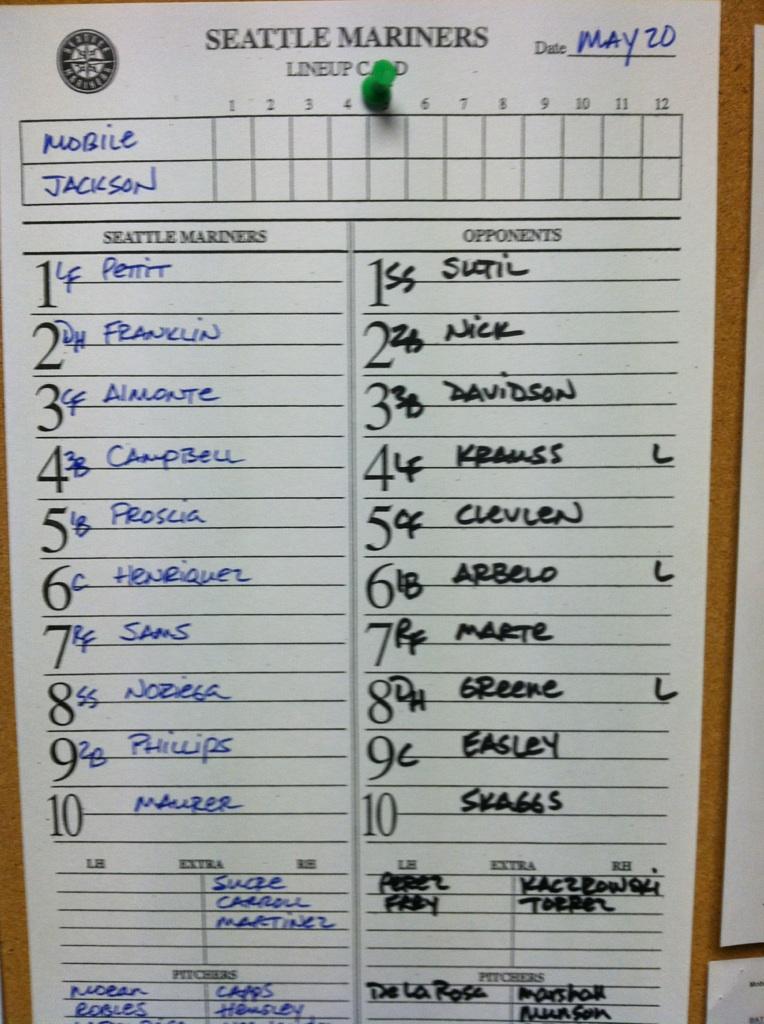 SEATTLE MARINERS
LINEUP C D
Date MAY 20
1 2 3 4 6 7 8 9 10 11 12
MOBILE
JACKSON
SEATTLE MARINERS OPPONENTS
1 LF PETIT 1 SS SUTIL
2 DH FRANKLIN 2 2B NICK
3 CF ALMONTE 3 3B DAVIDSON
4 3B CAMPBELL 4 LF KRAUSS L
5 1B PROSCIA 5 CF CLEVLEN
6 C HENRIQUEZ 6 1B ARBELO L
7 RF SAMS 7 RF MARTE
8 SS NORIEGA 8 DH GREENE L
9 2B PHILLIPS 9 C EASLEY
10 MAURER 10 SKAGGS
LH EXTRA RH LH EXTRA RH
SUCRE PEREZ KACZROWSKI
CARROLL FREY TORREZ
MARTINEZ
PITCHERS PITCHERS
MORAN CAPPS DE LA ROSA MARSHALL
ROBLES HENSLEY MUNSON